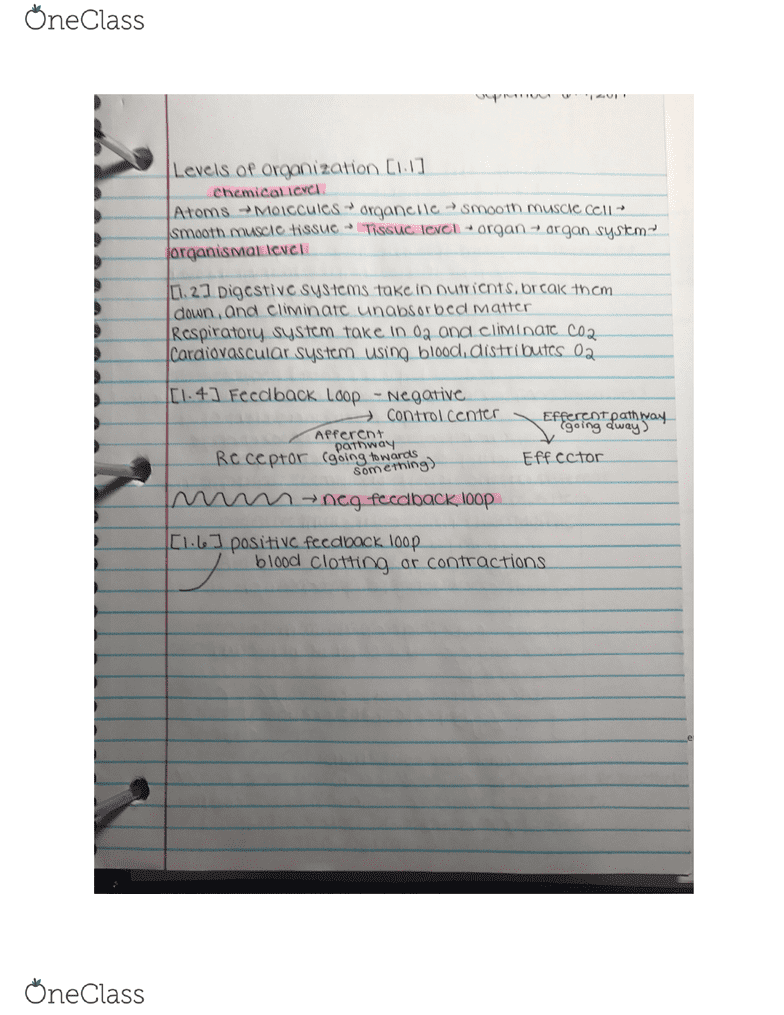 OneClass
Levels of organization [1.1]
chemical level
Atoms → Molecules → organelle → smooth muscle cell →
smooth muscle tissue → Tissue level → organ → organ system →
organismal level
[1.2] Digestive systems take in nutrients, break them
down, and eliminate unabsorbed matter
Respiratory system take in O2 and eliminate CO2
Cardiovascular system using blood, distributes O2
[1.4] Feedback Loop - Negative
control center
Efferent pathway
(going away)
Afferent
pathway
(going towards
something)
Receptor
Effector
→ neg feedback loop
[1.6] positive feedback loop
blood clotting or contractions
OneClass